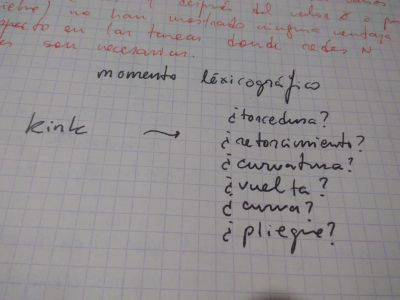 después del valor 8 o
) no han mostrado ninguna ventaja
respecto en las tareas donde redes N
son necesarias.
momento léxicográfico
kink →
¿torcedura?
¿retorcimiento?
¿curvatura?
¿vuelta?
¿curva?
¿pliegue?